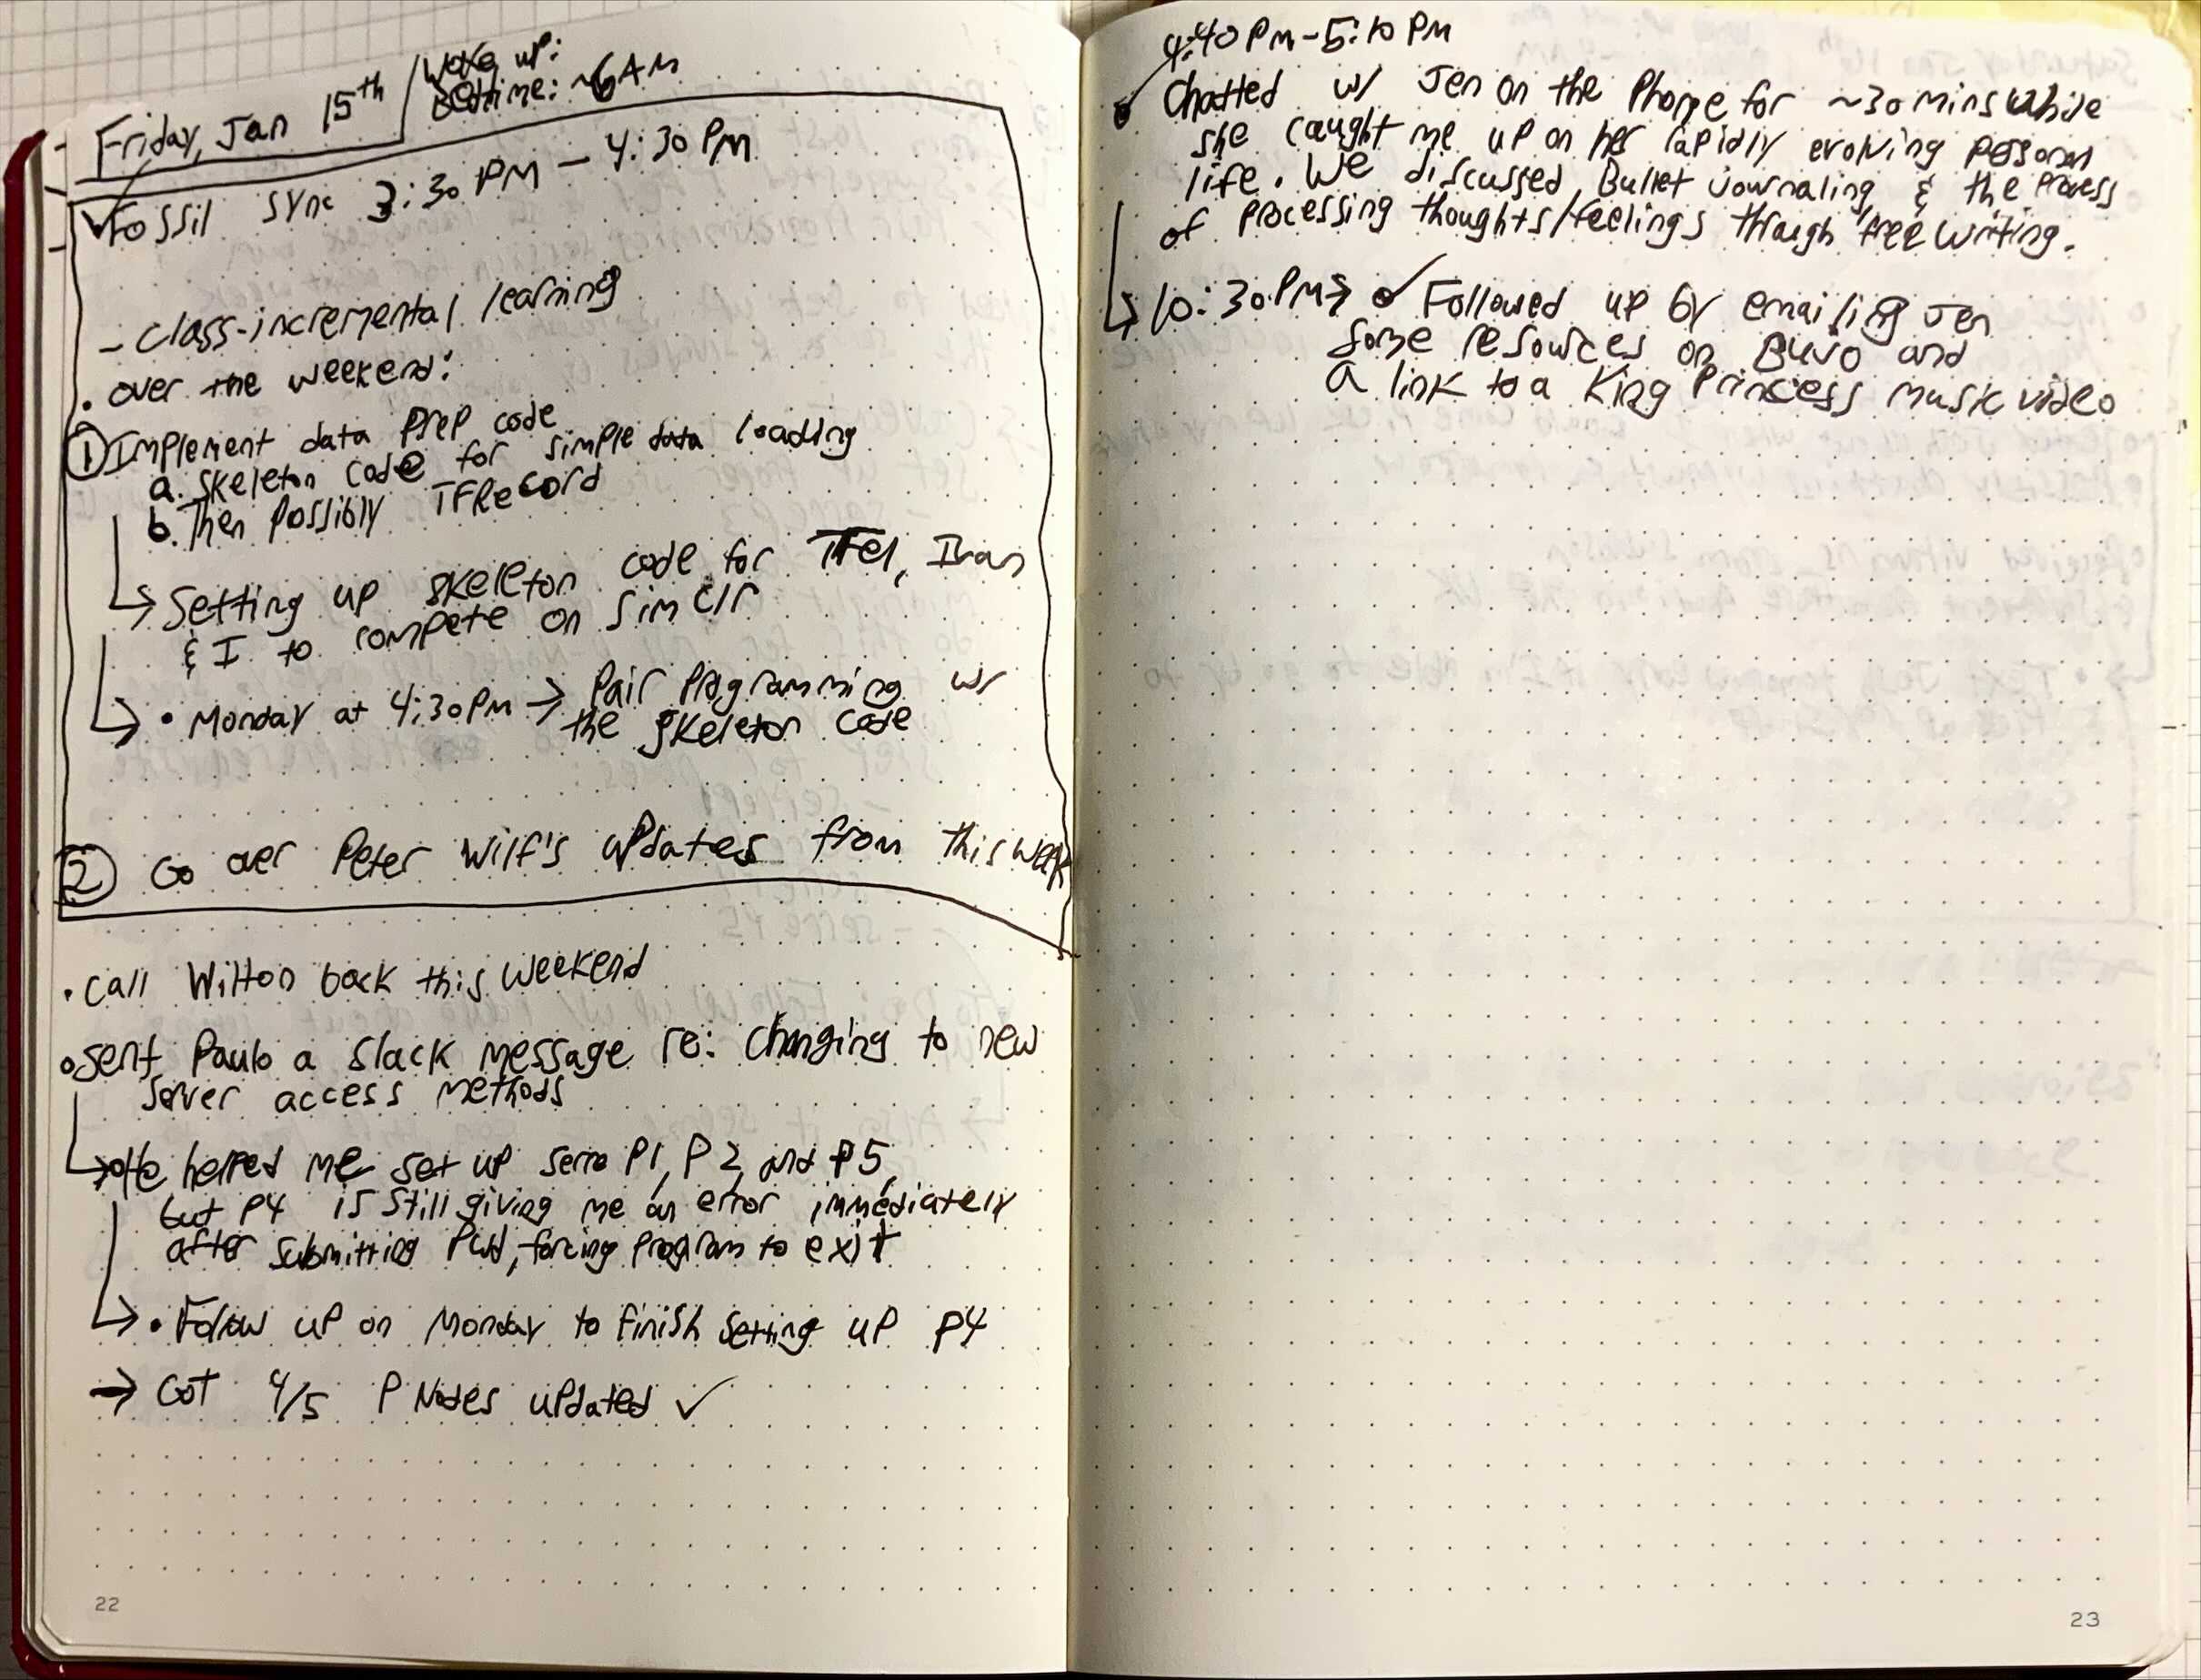 Friday, Jan 15th
Woke up:
Bedtime: ~6AM
Fossil sync 3:30 PM – 4:30 PM
- Class-incremental learning
• over the weekend:
① Implement data prep code
a. Skeleton code for simple data loading
b. Then possibly TFRecord
↳ Setting up skeleton code for Ivan
& I to compete on SimClr
↳ • Monday at 4:30PM → Pair programming w/
the skeleton code
② Go over Peter Wilf's updates from this week
• Call Wilton back this weekend
○ Sent Paulo a Slack message re: Changing to new
server access methods
↳ ○ He helped me set up serre P1, P2, and P5,
but P4 is still giving me an error immediately
after submitting Pwd, forcing program to exit
↳ • Follow up on Monday to finish setting up P4
→ Got 4/5 P Nodes updated ✓
22
4:40 PM – 5:10 PM
Chatted w/ Jen on the Phone for ~30 mins while
she caught me up on her rapidly evolving personal
life. We discussed Bullet Journaling & the process
of processing thoughts/feelings through free writing.
↳ 10:30 PM → Followed up by emailing Jen
some resources on BUJO and
a link to a King Princess music video
23